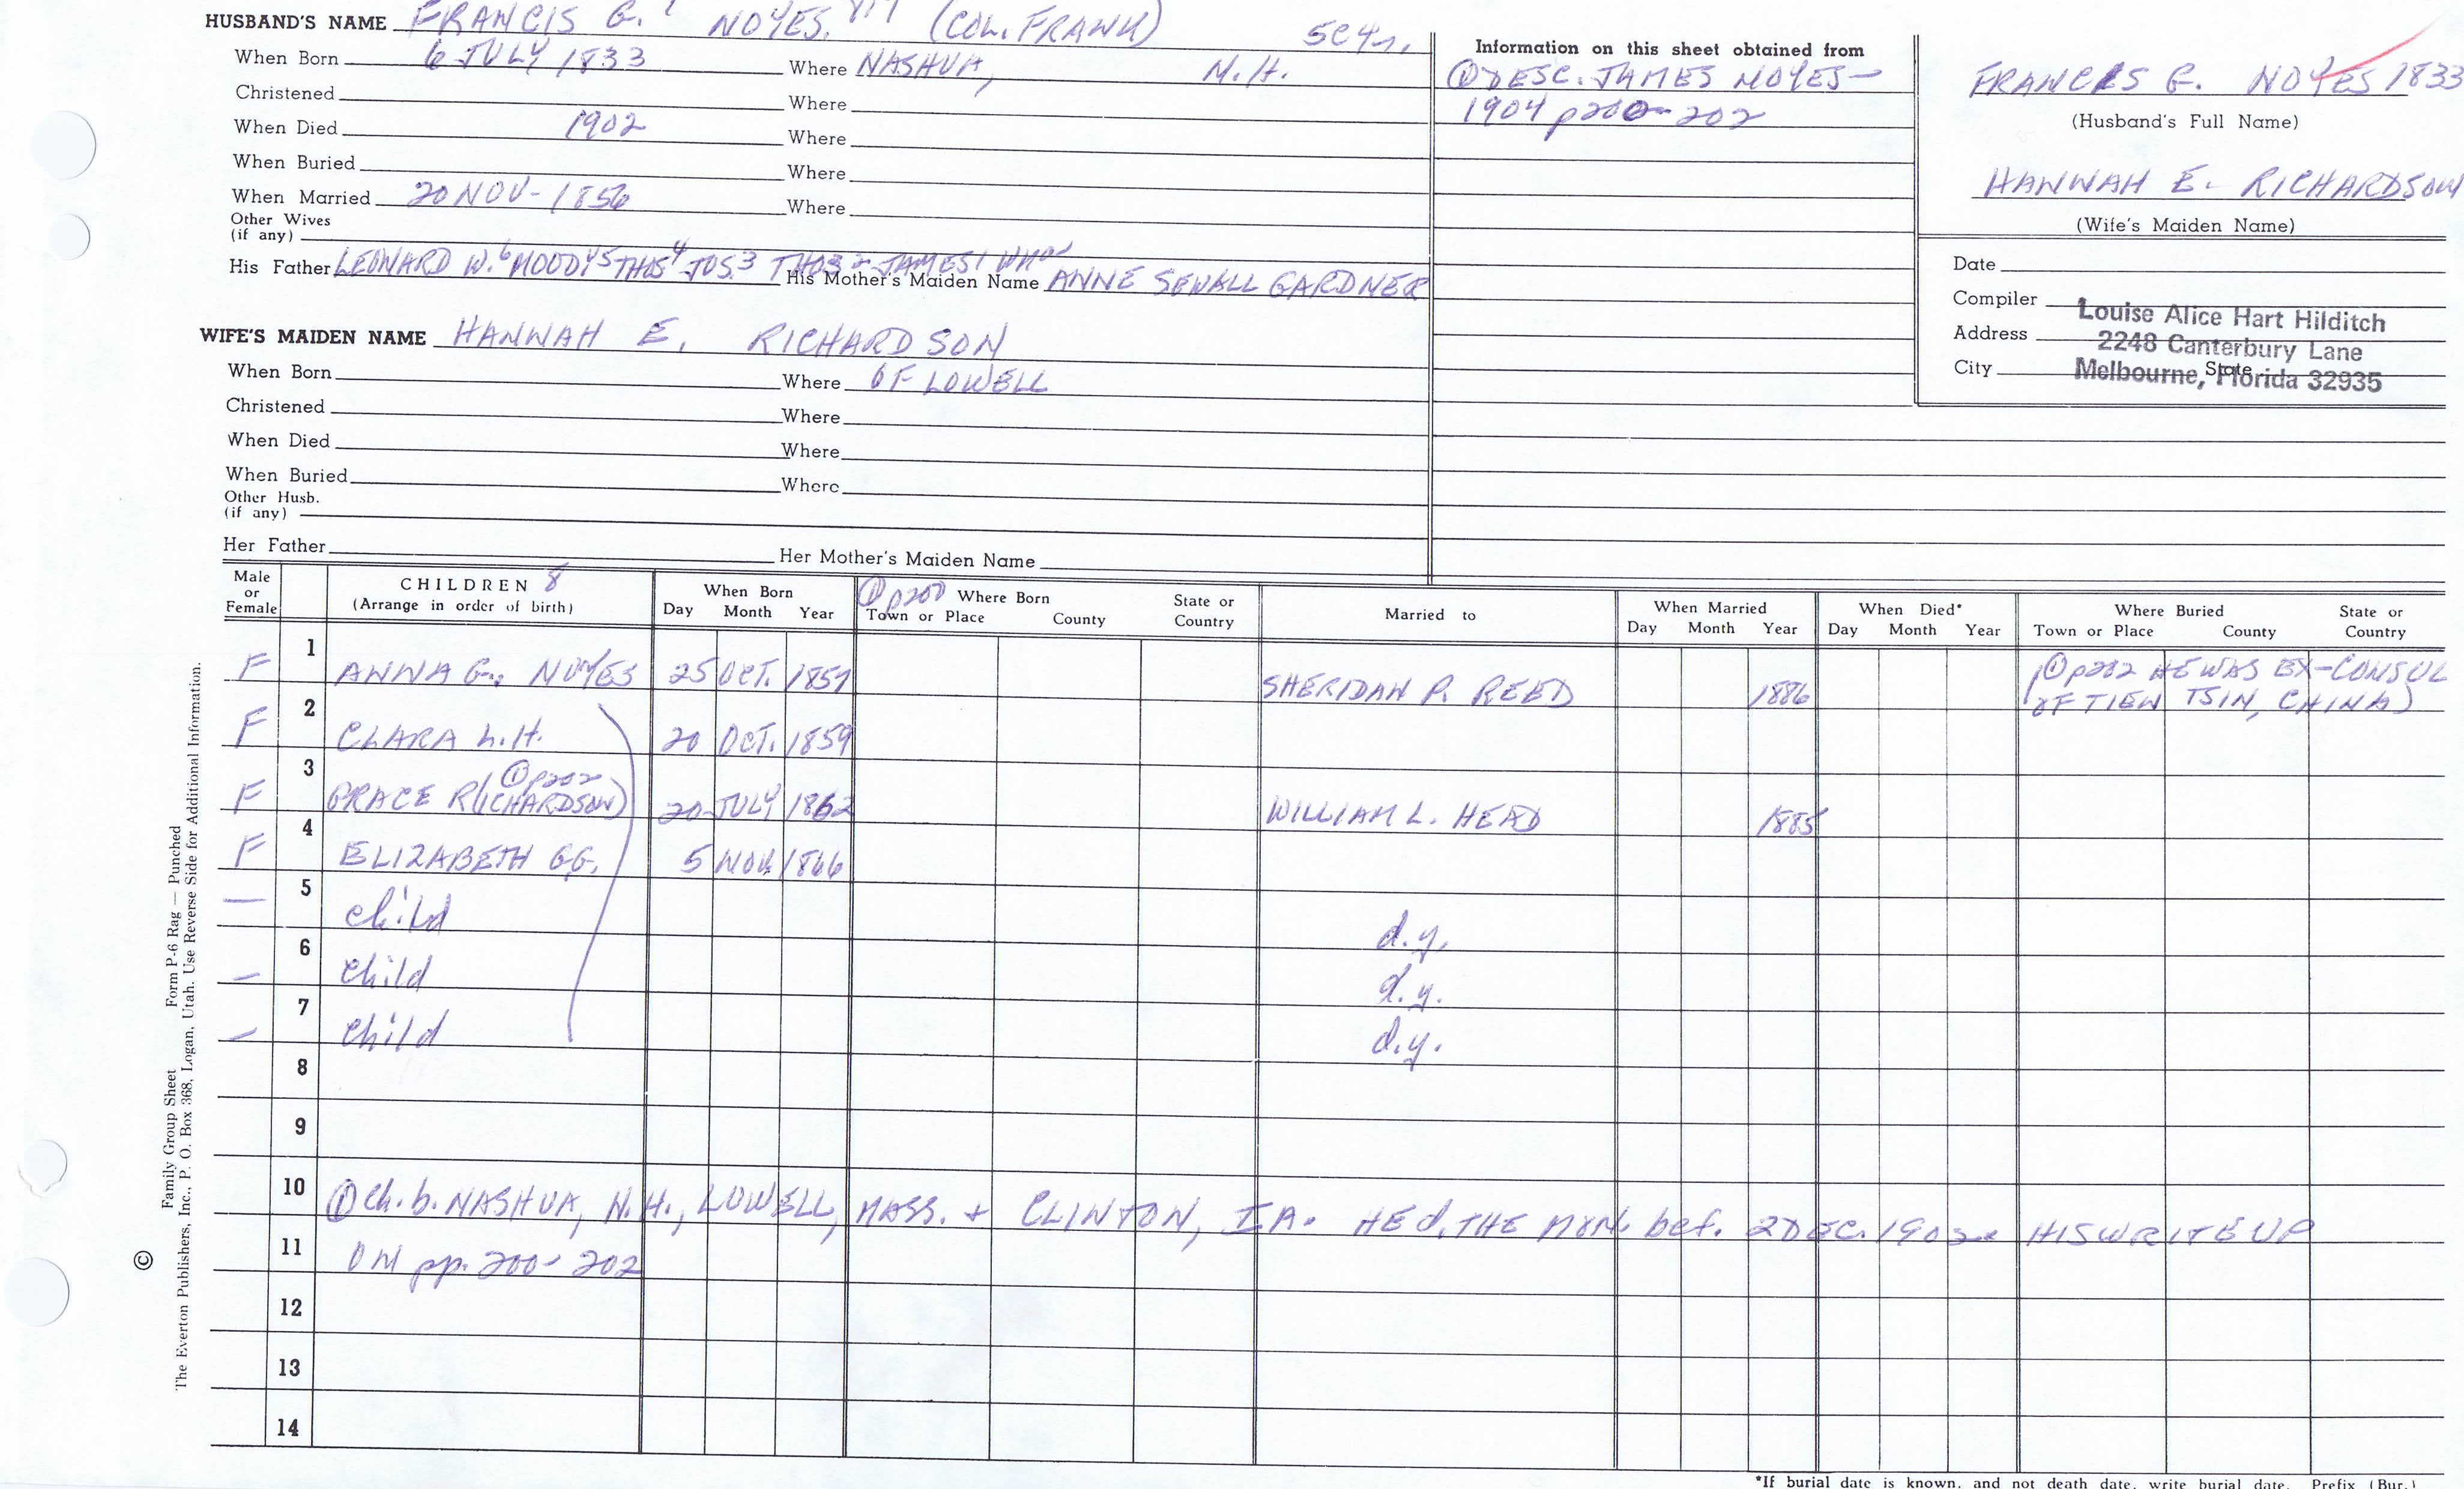 HUSBAND'S NAME FRANCIS G. 7 NOYES. VIII (COL. FRANK)
When Born 6 JULY 1833 Where NASHUA, N.H.
Christened Where
When Died 1902 Where
When Buried Where
When Married 20 NOV - 1856 Where
Other Wives
(if any)
His Father LEONARD W.6 MOODY5 THOS4 JOS.3 THOS2 JAMES1 His Mother's Maiden Name ANNE SEWALL GARDNER
WIFE'S MAIDEN NAME HANNAH E. RICHARDSON
When Born Where OF LOWELL
Christened Where
When Died Where
When Buried Where
Other Husb.
(if any)
Her Father Her Mother's Maiden Name
Information on this sheet obtained from
① DESC. JAMES NOYES-
1904 p200-202
FRANCIS G. NOYES 1833
(Husband's Full Name)
HANNAH E. RICHARDSON
(Wife's Maiden Name)
Date
Compiler Louise Alice Hart Hilditch
Address 2248 Canterbury Lane
City State Melbourne, Florida 32935
Male or Female CHILDREN 8 (Arrange in order of birth) When Born Day Month Year ① p200 Where Born Town or Place County State or Country Married to When Married Day Month Year When Died* Day Month Year Where Buried Town or Place County State or Country
F 1 ANNA G. NOYES 25 OCT. 1857 SHERIDAN P. REED 1886 (① p202 HE WAS EX-CONSUL
OF TIEN TSIN, CHINA)
F 2 CLARA L.H. 20 OCT. 1859
① p202
F 3 GRACE R(ICHARDSON) 20 JULY 1862 WILLIAM L. HEAD 1885
F 4 ELIZABETH G.G. 5 NOV. 1866
— 5 child d.y.
— 6 child d.y.
— 7 child d.y.
8
9
10 ① Ch. b. NASHUA, N.H., LOWELL, MASS. + CLINTON, IA. HE d. THE bef. 2 DEC. 1902. HIS WRITE UP
11 ON pp. 200-202
12
13
14
© Family Group Sheet Form P-6 Rag — Punched
The Everton Publishers, Inc., P. O. Box 368, Logan, Utah. Use Reverse Side for Additional Information.
*If burial date is known, and not death date, write burial date. Prefix (Bur.)